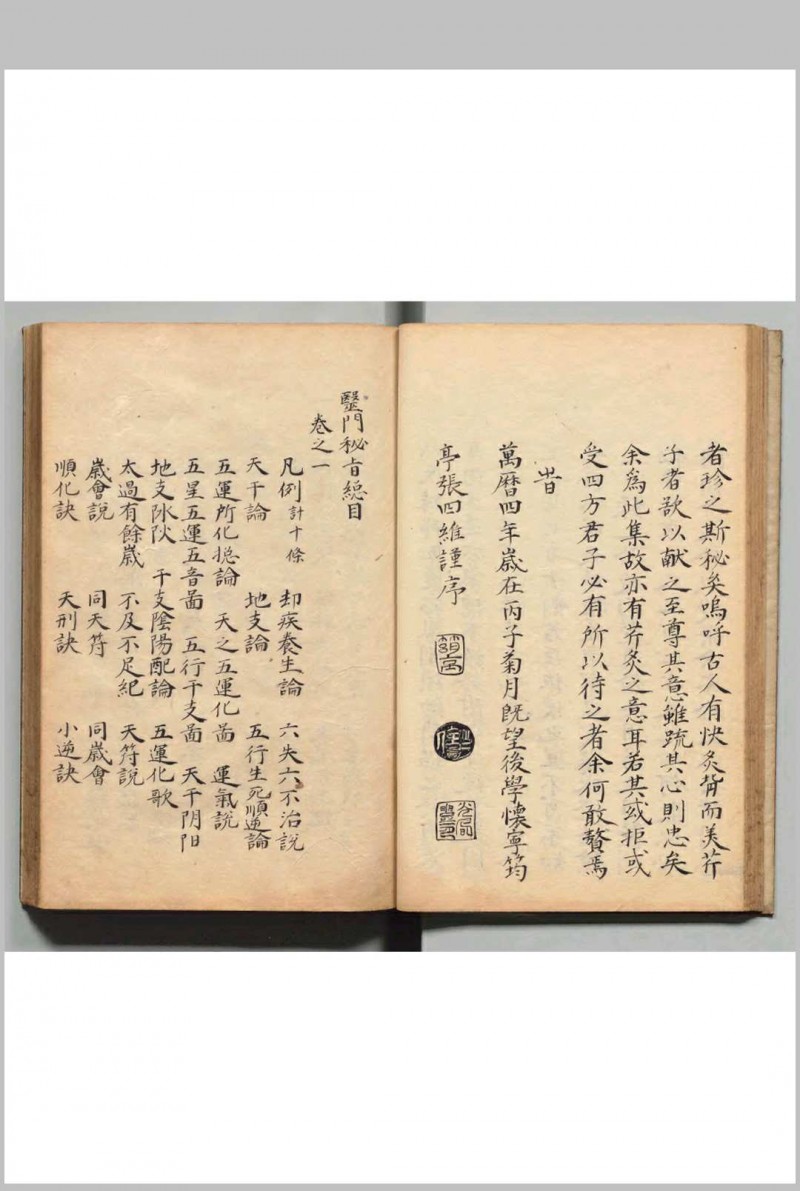 者珍之斯秘矣嗚呼古人有快炙背而美芹
子者欲以献之至尊其意雖疏其心則忠矣
余爲此集故亦有芹炙之意耳若其或拒或
受四方君子必有所以待之者余何敢贅焉
旹
萬曆四年歲在丙子菊月既望後學懷寧筠
亭張四維謹序
毉門秘旨緫目
卷之一
凡例計十條 却疾養生論 六失六不治說
天干論 地支論 五行生死順逆論
五運所化捴論 天之五運化啚 運氣說
五星五運五音啚 五行干支啚 天干阴阳
地支 干支陰陽配論 五運化歌
太過有餘歲 不及不足紀 天符說
歲會說 同天符 同歲會
順化訣 天刑訣 小逆訣